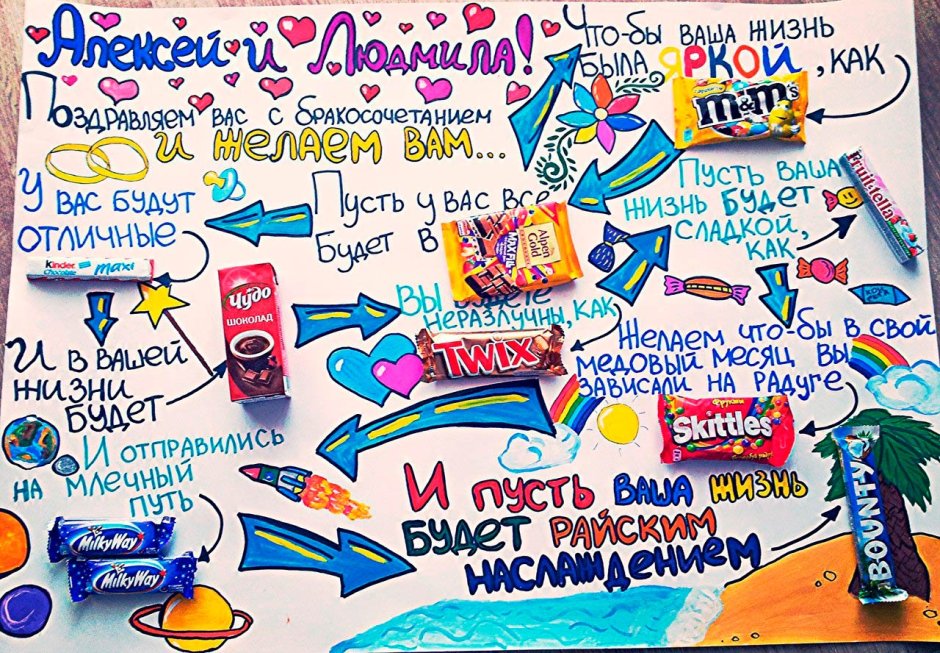 Алексей и Людмила!
Поздравляем вас с бракосочетанием
и желаем вам...
Что-бы ваша жизнь
была яркой, как
m&m's
Пусть у вас все
будет в
Alpen
Gold
У вас будут
отличные
Kinder
Chocolate maxi
И в вашей
жизни
будет
Чудо
шоколад
Вы будете
неразлучны, как
TWIX
Пусть ваша
жизнь будет
сладкой,
как
Fruittella
Желаем что-бы в свой
медовый месяц вы
зависали на радуге
Skittles
И отправились
на млечный
путь
MilkyWay
MilkyWay
И пусть ваша жизнь
будет райским
наслаждением
BOUNTY